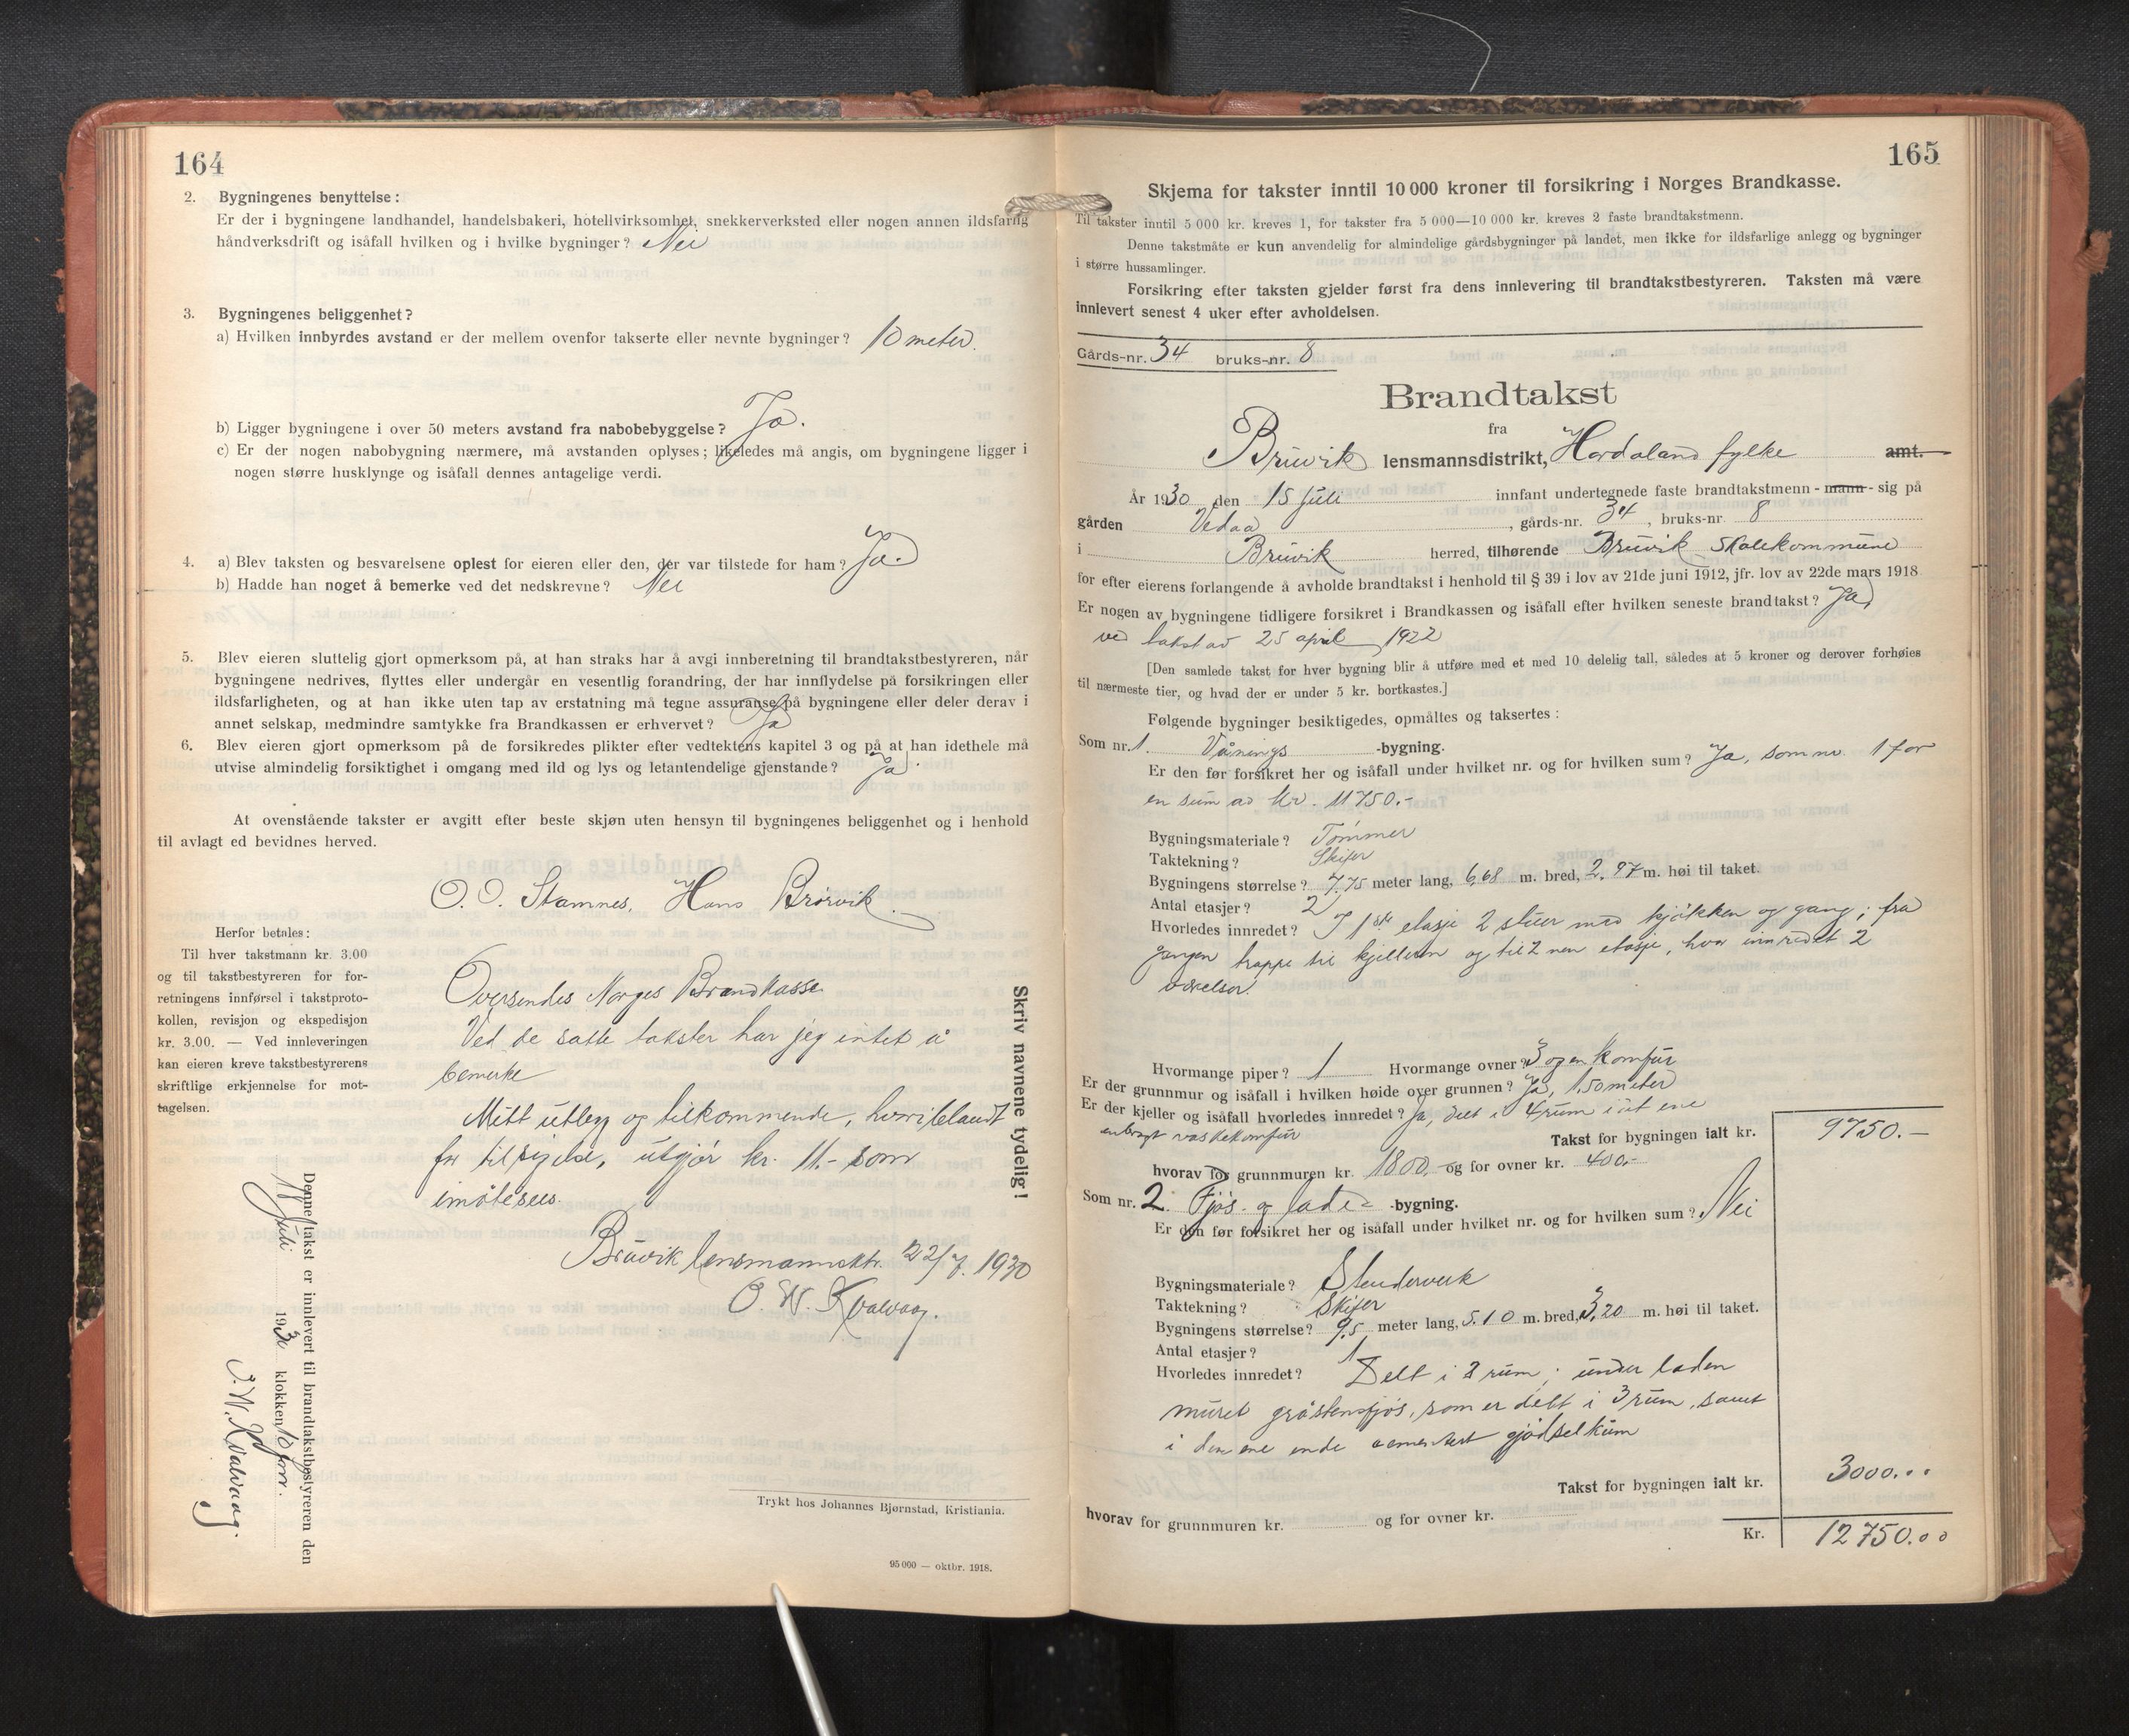 164
2. Bygningenes benyttelse:
Er der i bygningene landhandel, handelsbakeri, hotellvirksomhet, snekkerverksted eller nogen annen ildsfarlig
håndverksdrift og isåfall hvilken og i hvilke bygninger? Nei
3. Bygningenes beliggenhet?
a) Hvilken innbyrdes avstand er der mellem ovenfor takserte eller nevnte bygninger? 10 meter.
b) Ligger bygningene i over 50 meters avstand fra nabobebyggelse? Ja.
c) Er der nogen nabobygning nærmere, må avstanden oplyses; likeledes må angis, om bygningene ligger i
nogen større husklynge og isåfall dennes antagelige verdi.
4. a) Blev taksten og besvarelsene oplest for eieren eller den, der var tilstede for ham? Ja.
b) Hadde han noget å bemerke ved det nedskrevne? Nei
5. Blev eieren sluttelig gjort opmerksom på, at han straks har å avgi innberetning til brandtakstbestyreren, når
bygningene nedrives, flyttes eller undergår en vesentlig forandring, der har innflydelse på forsikringen eller
ildsfarligheten, og at han ikke uten tap av erstatning må tegne assuranse på bygningene eller deler derav i
annet selskap, medmindre samtykke fra Brandkassen er erhvervet? Ja
6. Blev eieren gjort opmerksom på de forsikredes plikter efter vedtektens kapitel 3 og på at han idethele må
utvise almindelig forsiktighet i omgang med ild og lys og letantendelige gjenstande? Ja.
At ovenstående takster er avgitt efter beste skjøn uten hensyn til bygningenes beliggenhet og i henhold
til avlagt ed bevidnes herved.
O. O. Stamnes, Hans Brørvik.
Herfor betales:
Til hver takstmann kr. 3.00
og til takstbestyreren for for-
retningens innførsel i takstproto-
kollen, revisjon og ekspedisjon
kr. 3.00. — Ved innleveringen
kan eieren kreve takstbestyrerens
skriftlige erkjennelse for mot-
tagelsen.
Oversendes Norges Brandkasse
Ved de satte takster har jeg intet å
bemerke
Mitt utlegg og tilkommende, hvoriblandt
for tilsigelse, utgjør kr. 11.- som
imøtesees.
Bruvik lensmannsktr. 22/7. 1930
O. W. Kvalvaag.
Skriv navnene tydelig!
Denne takst er innlevert til brandtakstbestyreren den
18 Juli 1930 klokken 10 form.
O. W. Kvalvaag.
Trykt hos Johannes Bjørnstad, Kristiania.
95 000 — oktbr. 1918.
165
Skjema for takster inntil 10 000 kroner til forsikring i Norges Brandkasse.
Til takster inntil 5 000 kr. kreves 1, for takster fra 5 000—10 000 kr. kreves 2 faste brandtakstmenn.
Denne takstmåte er kun anvendelig for almindelige gårdsbygninger på landet, men ikke for ildsfarlige anlegg og bygninger
i større hussamlinger.
Forsikring efter taksten gjelder først fra dens innlevering til brandtakstbestyreren. Taksten må være
innlevert senest 4 uker efter avholdelsen.
Gårds-nr. 34 bruks-nr. 8
Brandtakst
fra
Bruvik lensmannsdistrikt, Hordaland fylke amt.
År 1930 den 15 juli innfant undertegnede faste brandtakstmenn - mann - sig på
gården Vedaa, gårds-nr. 34, bruks-nr 8
i Bruvik herred, tilhørende Bruvik Skolekommune
for efter eierens forlangende å avholde brandtakst i henhold til § 39 i lov av 21de juni 1912, jfr. lov av 22de mars 1918
Er nogen av bygningene tidligere forsikret i Brandkassen og isåfall efter hvilken seneste brandtakst? Ja
ved takst av 25 april 1922
[Den samlede takst for hver bygning blir å utføre med et med 10 delelig tall, således at 5 kroner og derover forhøies
til nærmeste tier, og hvad der er under 5 kr. bortkastes.]
Følgende bygninger besiktigedes, opmåltes og taksertes:
Som nr. 1. Vånings -bygning.
Er den før forsikret her og isåfall under hvilket nr. og for hvilken sum? Ja, som nr. 1 for
en sum av kr. 11750.-
Bygningsmateriale? Tømmer
Taktekning? Skifer
Bygningens størrelse? 7.75 meter lang, 6,68 m. bred, 2,97 m. høi til taket.
Antal etasjer? 2
Hvorledes innredet? I 1ste etasje 2 stuer med kjøkken og gang; fra
gangen trappe til kjelleren og til 2 nen etasje, hvor innredet 2
værelser.
Hvormange piper? 1 Hvormange ovner? 3 og en komfur
Er der grunnmur og isåfall i hvilken høide over grunnen? Ja, 1,50 meter
Er der kjeller og isåfall hvorledes innredet? Ja, delt i 4 rum i det ene
anbragt vaskekomfur
Takst for bygningen ialt kr. 9750.—
hvorav for grunnmuren kr. 1800.- og for ovner kr. 400.-
Som nr. 2. Fjøs- og lade- -bygning.
Er den før forsikret her og isåfall under hvilket nr. og for hvilken sum? Nei
Bygningsmateriale? Stenderverk
Taktekning? Skifer
Bygningens størrelse? 9,5 meter lang, 5.10 m. bred, 3,20 m. høi til taket.
Antal etasjer? 1
Hvorledes innredet? Delt i 2 rum; under laden
muret gråstensfjøs, som er delt i 3 rum, samt
i den ene ende cementert gjødselkum
Takst for bygningen ialt kr. 3000...
hvorav for grunnmuren kr. og for ovner kr.
Kr. 12750.00